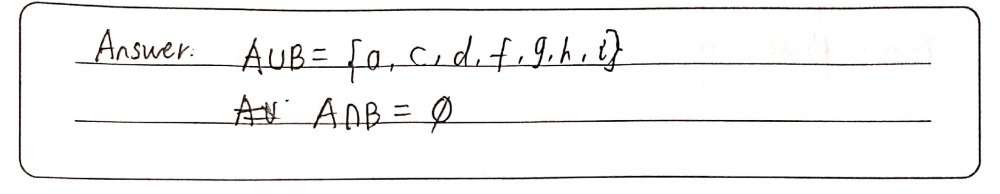 Answer: A∪B = {a, c, d, f, g, h, i}
A∩B = ∅